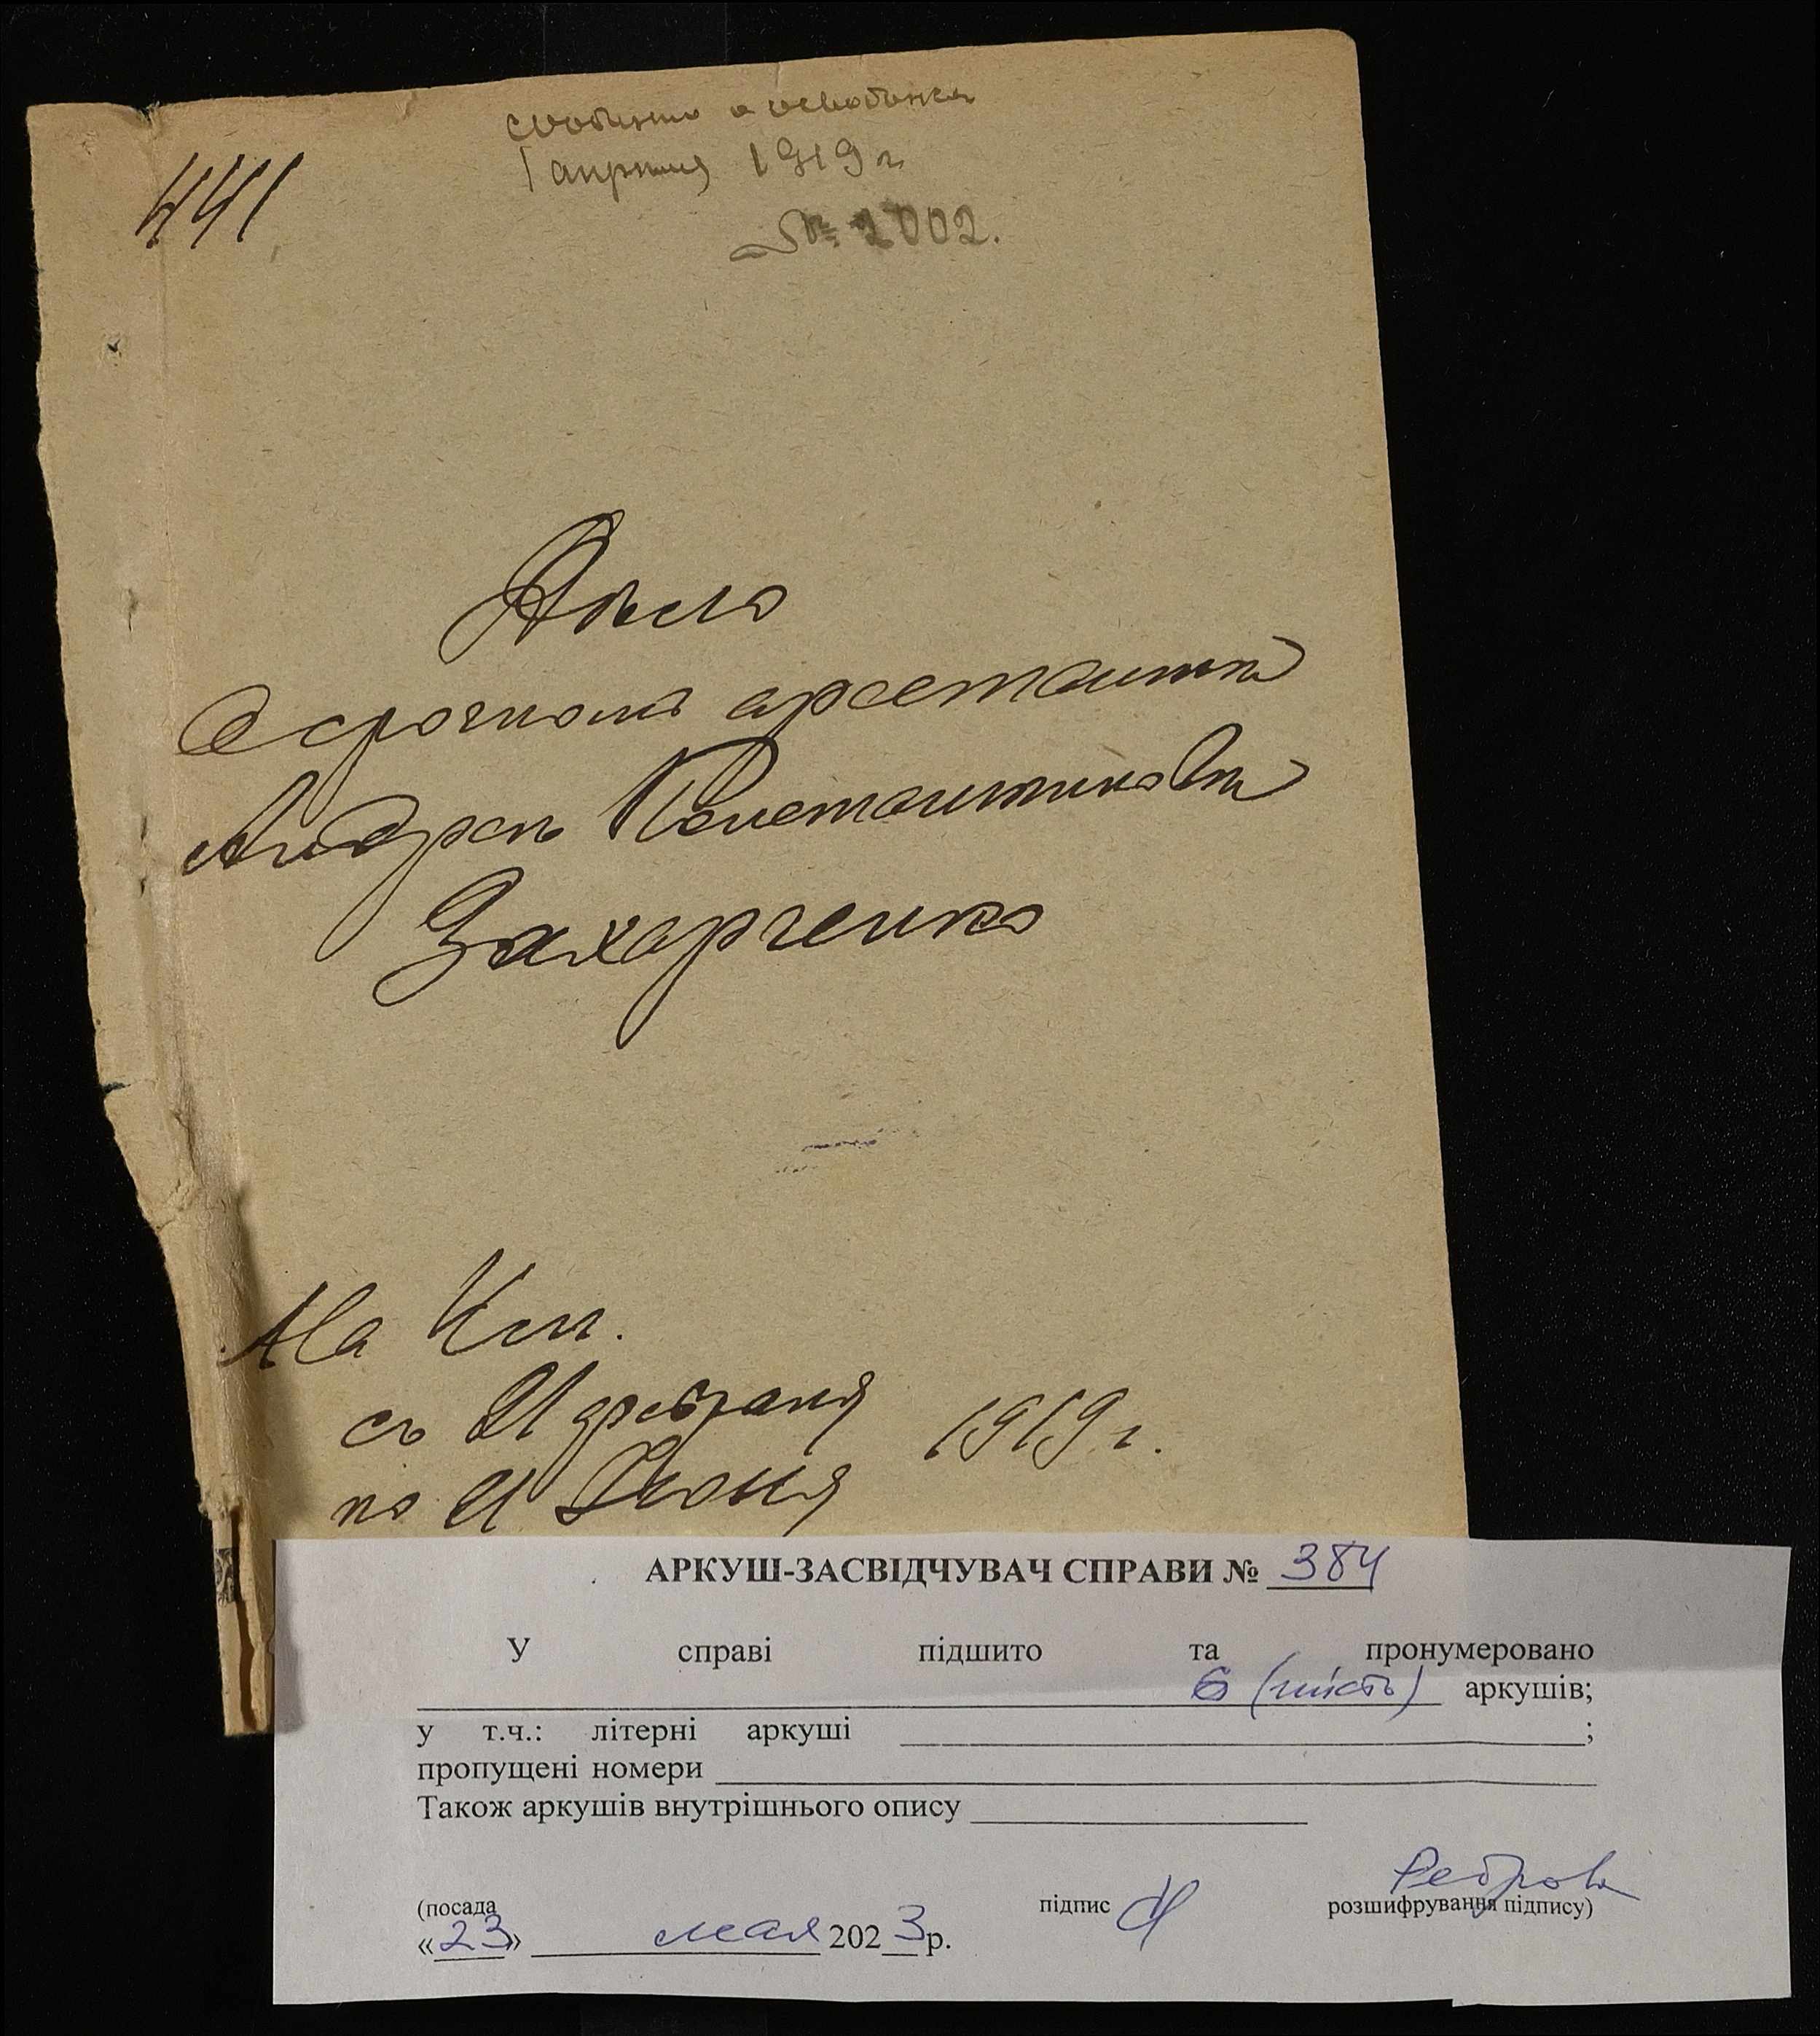 441
сообщено о освобожд
1 апреля 1919 г
№ 2002.
Дѣло
О срочном арестантѣ
Андреѣ Константиновѣ
Захарченко
На
съ 21 февраля 1919 г.
по 21 Июня
АРКУШ-ЗАСВІДЧУВАЧ СПРАВИ № 384
У справі підшито та пронумеровано
6 (шість) аркушів;
у т.ч.: літерні аркуші ;
пропущені номери
Також аркушів внутрішнього опису
Реброва
(посада підпис розшифрування підпису)
«23» мая 2023р.